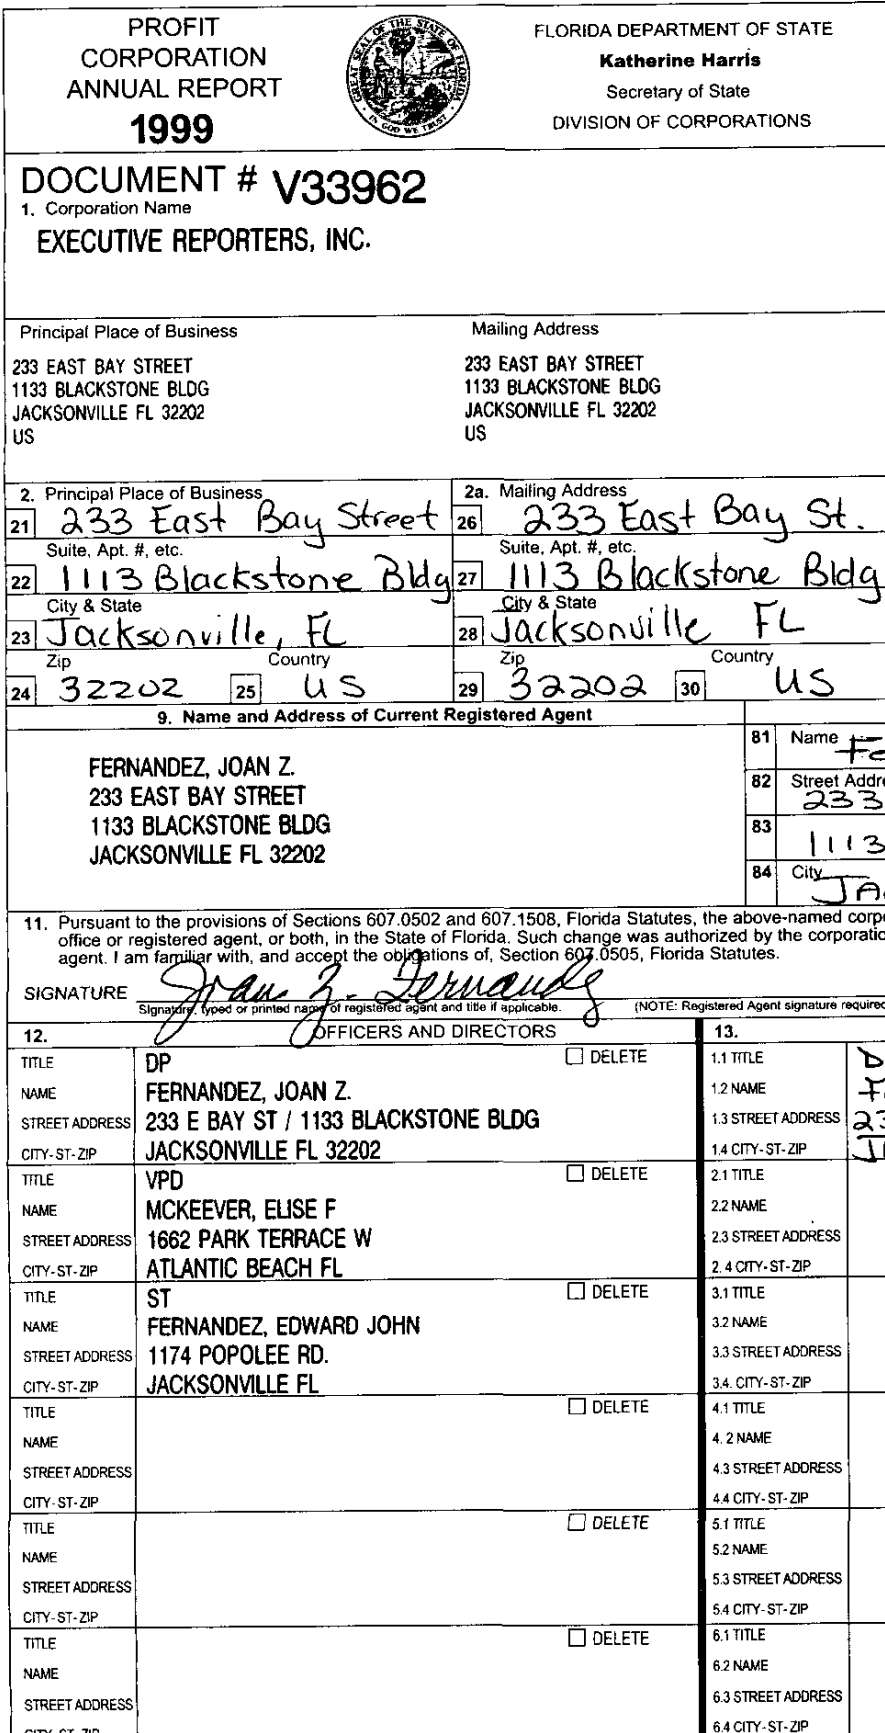 PROFIT
CORPORATION
ANNUAL REPORT
1999
GREAT SEAL OF THE STATE OF FLORIDA
IN GOD WE TRUST
FLORIDA DEPARTMENT OF STATE
Katherine Harris
Secretary of State
DIVISION OF CORPORATIONS
DOCUMENT # V33962
1. Corporation Name
EXECUTIVE REPORTERS, INC.
Principal Place of Business
233 EAST BAY STREET
1133 BLACKSTONE BLDG
JACKSONVILLE FL 32202
US
Mailing Address
233 EAST BAY STREET
1133 BLACKSTONE BLDG
JACKSONVILLE FL 32202
US
2. Principal Place of Business
21 233 East Bay Street
Suite, Apt. #, etc.
22 1113 Blackstone Bldg
City & State
23 Jacksonville, FL
Zip Country
24 32202 25 US
2a. Mailing Address
26 233 East Bay St.
Suite, Apt. #, etc.
27 1113 Blackstone Bldg
City & State
28 Jacksonville FL
Zip Country
29 32202 30 US
9. Name and Address of Current Registered Agent
FERNANDEZ, JOAN Z.
233 EAST BAY STREET
1133 BLACKSTONE BLDG
JACKSONVILLE FL 32202
81 Name Fe
82 Street Addre
233
83
1113
84 City
JA
11. Pursuant to the provisions of Sections 607.0502 and 607.1508, Florida Statutes, the above-named corp
office or registered agent, or both, in the State of Florida. Such change was authorized by the corporatio
agent. I am familiar with, and accept the obligations of, Section 607.0505, Florida Statutes.
SIGNATURE Joan Z. Fernandez
Signature, typed or printed name of registered agent and title if applicable. (NOTE: Registered Agent signature required
12. OFFICERS AND DIRECTORS
TITLE DP DELETE
NAME FERNANDEZ, JOAN Z.
STREET ADDRESS 233 E BAY ST / 1133 BLACKSTONE BLDG
CITY-ST-ZIP JACKSONVILLE FL 32202
TITLE VPD DELETE
NAME MCKEEVER, ELISE F
STREET ADDRESS 1662 PARK TERRACE W
CITY-ST-ZIP ATLANTIC BEACH FL
TITLE ST DELETE
NAME FERNANDEZ, EDWARD JOHN
STREET ADDRESS 1174 POPOLEE RD.
CITY-ST-ZIP JACKSONVILLE FL
TITLE DELETE
NAME
STREET ADDRESS
CITY-ST-ZIP
TITLE DELETE
NAME
STREET ADDRESS
CITY-ST-ZIP
TITLE DELETE
NAME
STREET ADDRESS
CITY-ST-ZIP
13.
1.1 TITLE D
1.2 NAME F
1.3 STREET ADDRESS 23
1.4 CITY-ST-ZIP J
2.1 TITLE
2.2 NAME
2.3 STREET ADDRESS
2.4 CITY-ST-ZIP
3.1 TITLE
3.2 NAME
3.3 STREET ADDRESS
3.4. CITY-ST-ZIP
4.1 TITLE
4.2 NAME
4.3 STREET ADDRESS
4.4 CITY-ST-ZIP
5.1 TITLE
5.2 NAME
5.3 STREET ADDRESS
5.4 CITY-ST-ZIP
6.1 TITLE
6.2 NAME
6.3 STREET ADDRESS
6.4 CITY-ST-ZIP